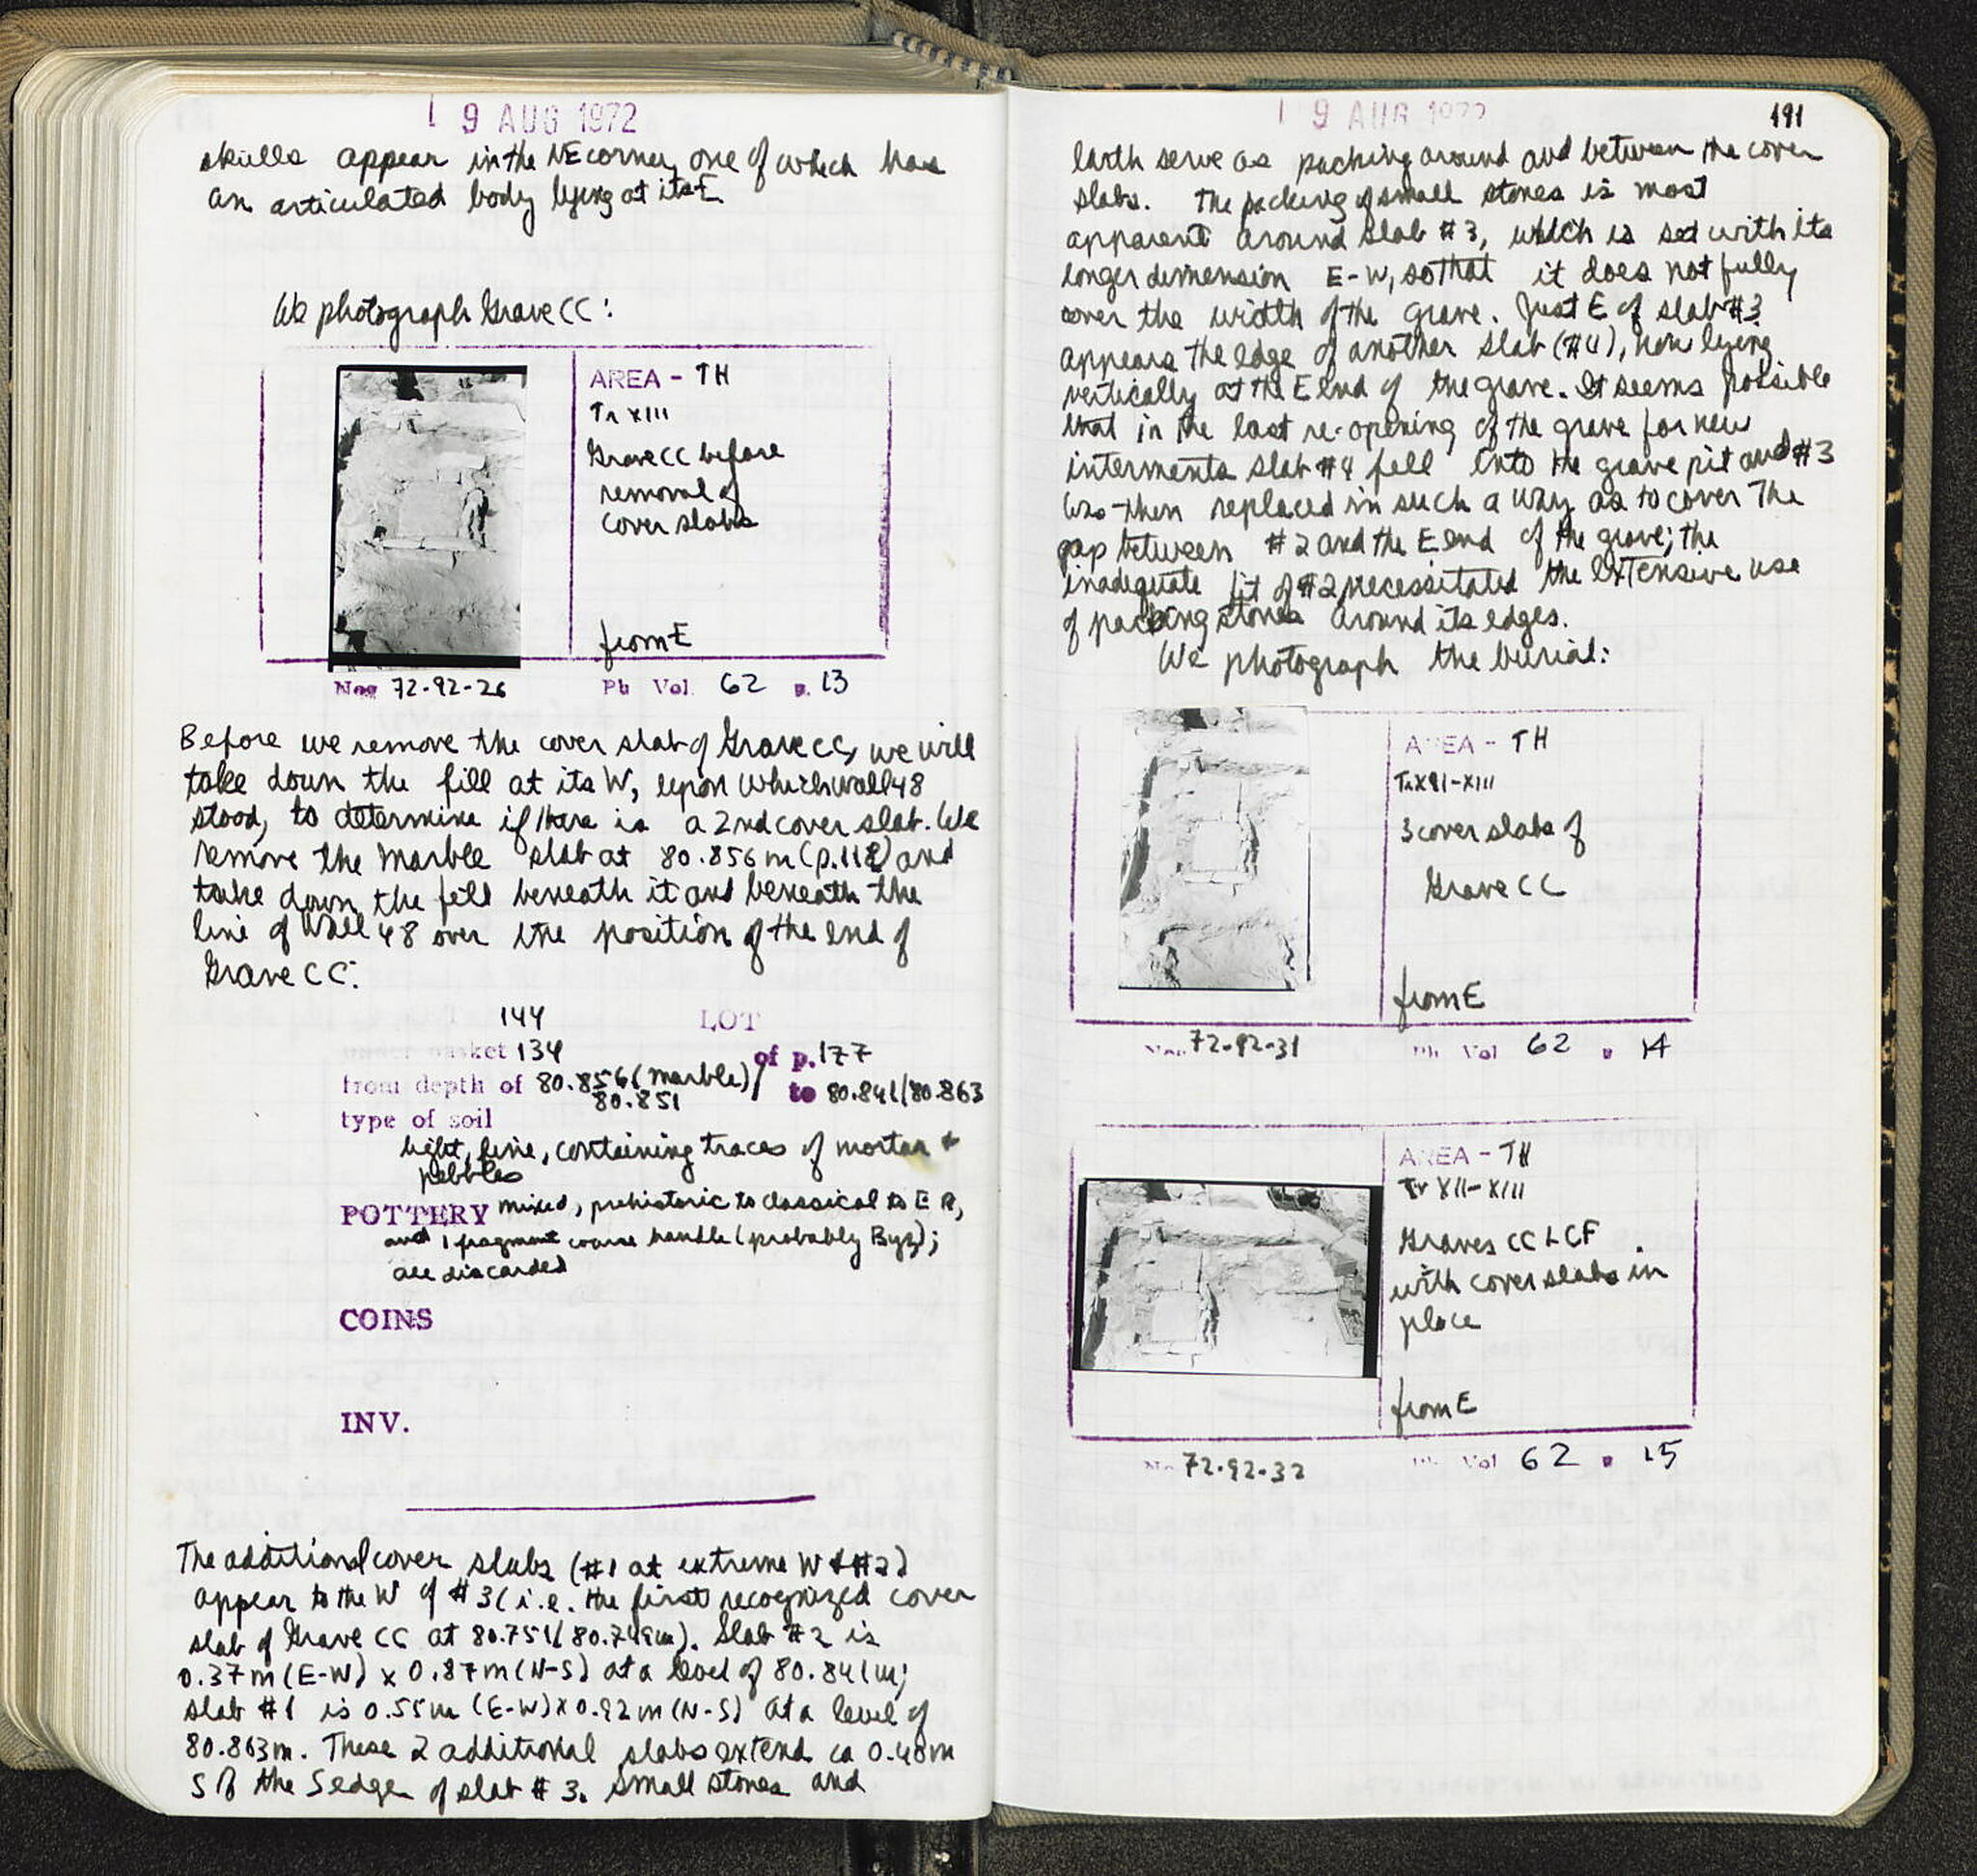 19 AUG 1972
skulls appear in the NE corner, one of which has
an articulated body lying at its E
We photograph Grave CC:
AREA - TH
Tr XIII
Grave CC before
removal of
cover slabs
from E
Neg 72-92-26 Ph Vol 62 p. 13
Before we remove the cover slab of Grave CC, we will
take down the fill at its W, upon which wall 48
stood, to determine if there is a 2nd cover slab. We
remove the marble slab at 80.856 m (p.118) and
take down the fill beneath it and beneath the
line of Wall 48 over the position of the end of
Grave CC:
144 LOT
under basket 134 of p. 177
from depth of 80.856 (marble)/ to 80.841/80.863
80.851
type of soil
light, fine, containing traces of mortar +
pebbles
POTTERY mixed, prehistoric to classical to E R,
and 1 fragment coarse handle (probably Byz);
all discarded
COINS
INV.
The additional cover slabs (#1 at extreme W & #2)
appear to the W of #3 (i.e. the first recognized cover
slab of Grave CC at 80.751/80.749m). Slab #2 is
0.37m (E-W) x 0.87m (N-S) at a level of 80.841m;
slab #1 is 0.55m (E-W) x 0.92m (N-S) at a level of
80.863m. These 2 additional slabs extend ca 0.40m
S of the S edge of slab #3. Small stones and
19 AUG 1972
191
earth serve as packing around and between the cover
slabs. The packing of small stones is most
apparent around slab #3, which is set with its
longer dimension E-W, so that it does not fully
cover the width of the grave. Just E of slab #3
appears the edge of another slab (#4), now lying
vertically at the E end of the grave. It seems possible
that in the last re-opening of the grave for new
interments slab #4 fell into the grave pit and #3
was then replaced in such a way as to cover the
gap between #2 and the E end of the grave; the
inadequate fit of #2 necessitated the extensive use
of packing stones around its edges.
We photograph the burial:
AREA - TH
Tr XII-XIII
3 cover slabs of
Grave CC
from E
Neg 72-92-31 Ph Vol 62 p 14
AREA - TH
Tr XII-XIII
Graves CC & CF
with cover slabs in
place
from E
Ne 72-92-32 Ph Vol 62 p 15